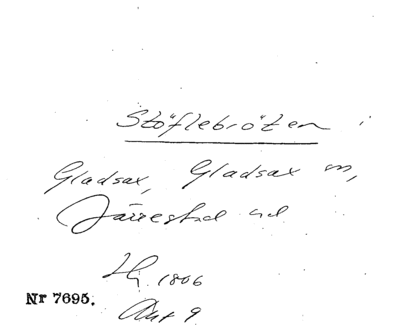 Stöflebröten i
Gladsax, Gladsax sn,
Järrestad hd
1806
Nr 7695.
Akt 9